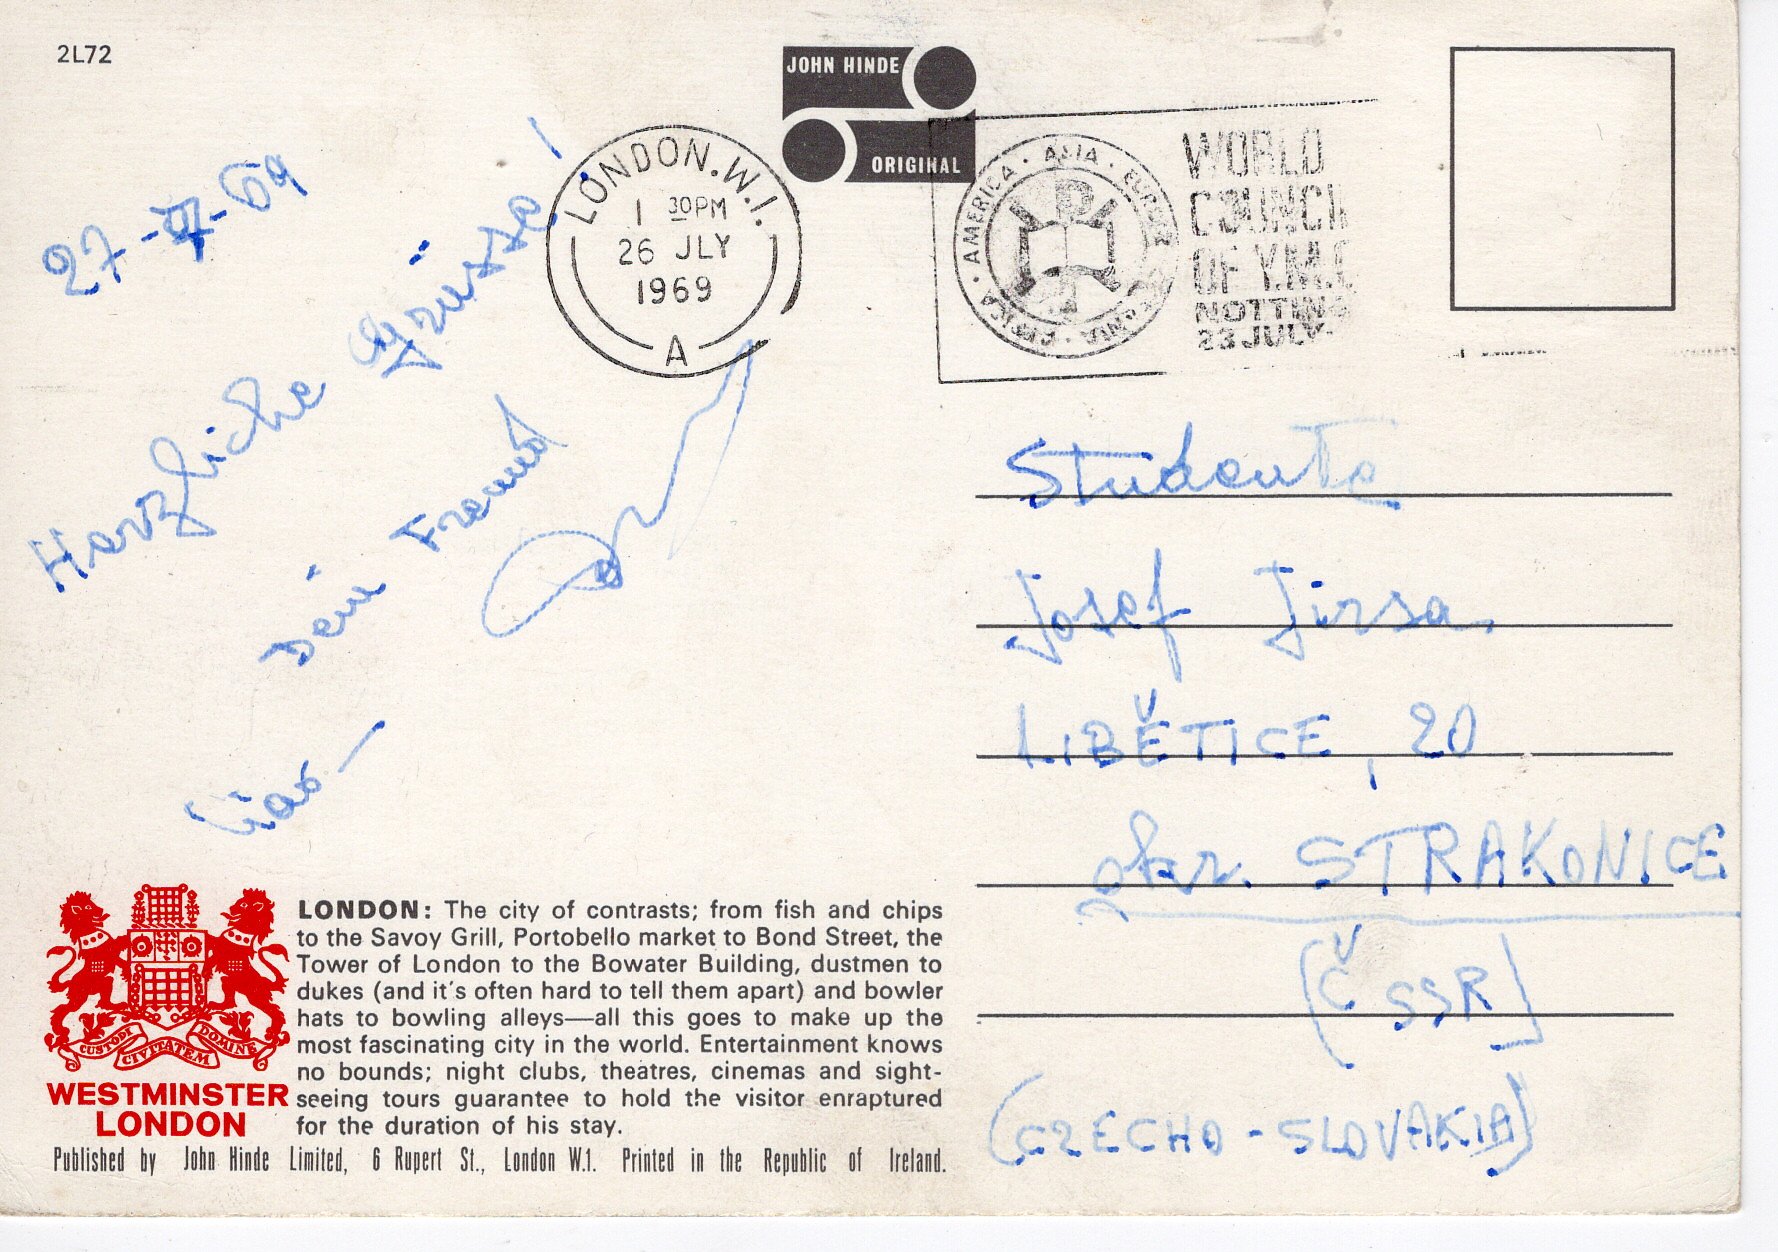 2L72
JOHN HINDE
ORIGINAL
LONDON.W.1.
1 30PM
26 JLY
1969
A
AMERICA · ASIA · EUROPE
AFRICA
WORLD
COUNCI
OF Y.M.C
NOTTING
23 JULY-
27-VII-69
Herzliche Grüsse!
Dein Freund
Ciao-
Studente
Josef Jirsa.
LIBĚTICE, 20
okr. STRAKONICE
(ČSSR)
(CZECHO-SLOVAKIA)
CUSTODI CIVITATEM DOMINE
WESTMINSTER
LONDON
LONDON: The city of contrasts; from fish and chips
to the Savoy Grill, Portobello market to Bond Street, the
Tower of London to the Bowater Building, dustmen to
dukes (and it's often hard to tell them apart) and bowler
hats to bowling alleys—all this goes to make up the
most fascinating city in the world. Entertainment knows
no bounds; night clubs, theatres, cinemas and sight-
seeing tours guarantee to hold the visitor enraptured
for the duration of his stay.
Published by John Hinde Limited, 6 Rupert St., London W.1. Printed in the Republic of Ireland.